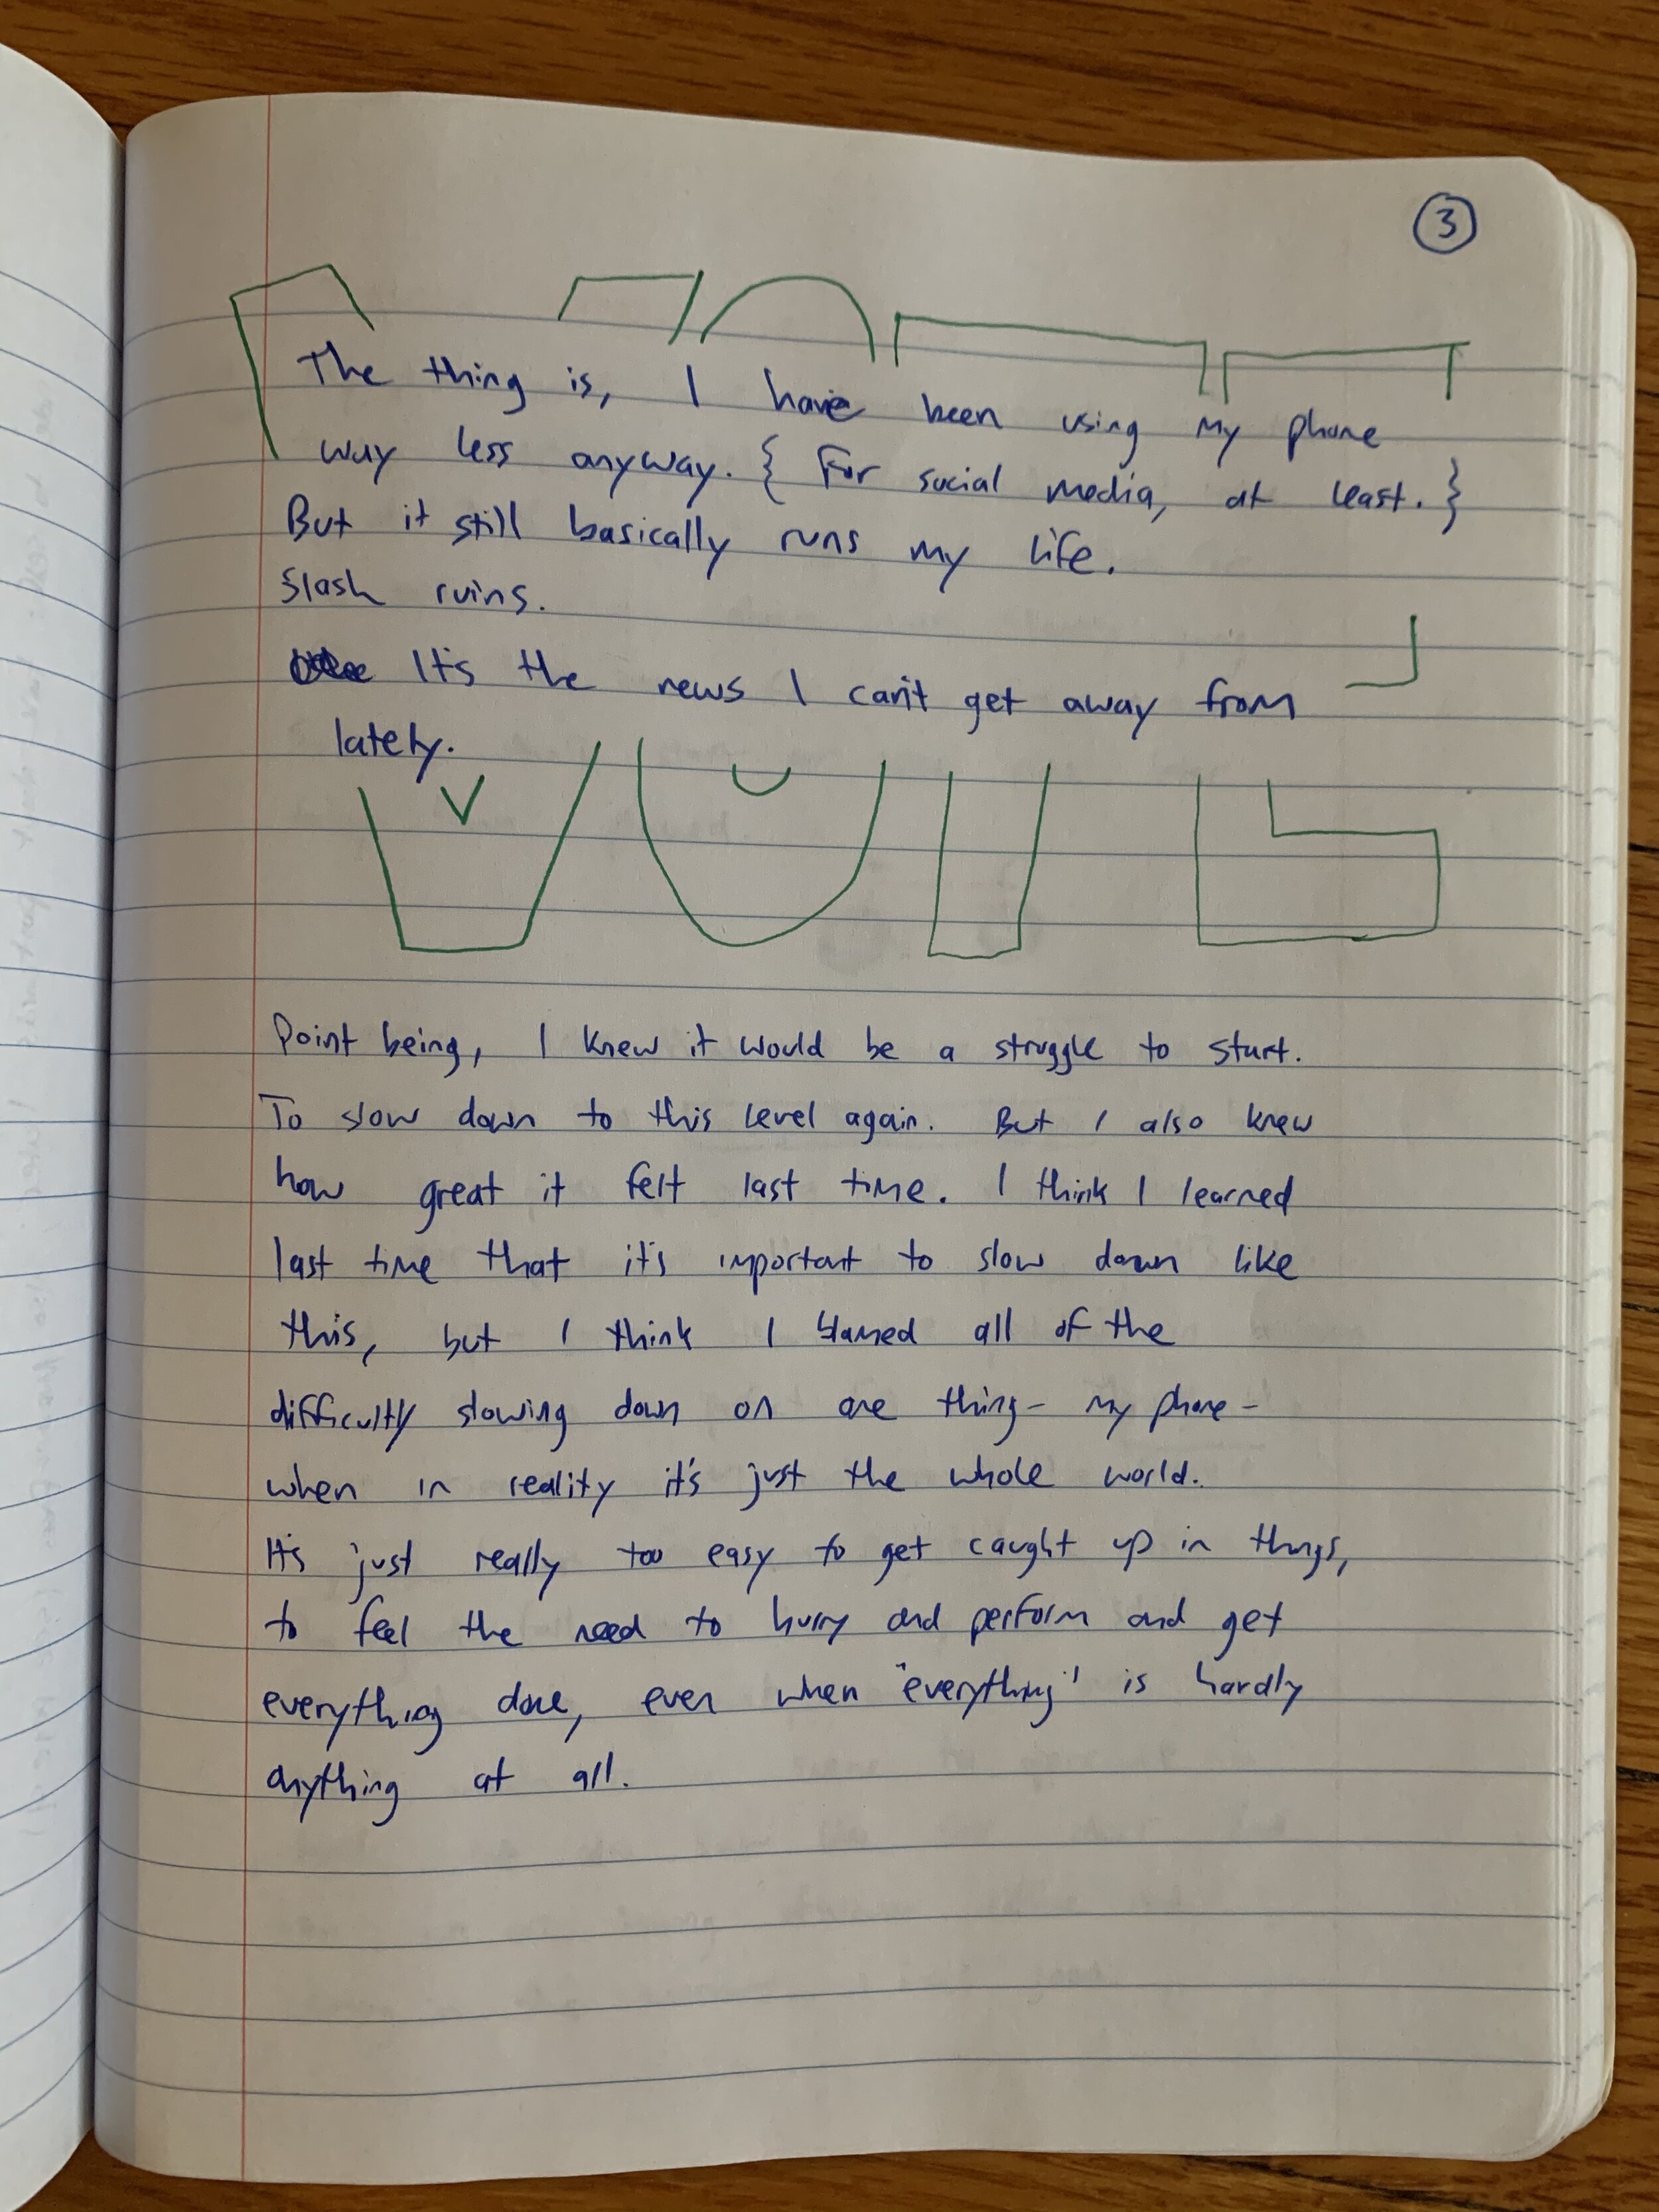 3
The thing is, I have been using my phone
way less anyway. { For social media, at least. }
But it still basically runs my life.
Slash ruins.
It's the news I can't get away from
lately.
Point being, I knew it would be a struggle to start.
To slow down to this level again. But I also knew
how great it felt last time. I think I learned
last time that it's important to slow down like
this, but I think I blamed all of the
difficulty slowing down on one thing - my phone -
when in reality it's just the whole world.
It's just really too easy to get caught up in things,
to feel the need to hurry and perform and get
everything done, even when "everything" is hardly
anything at all.